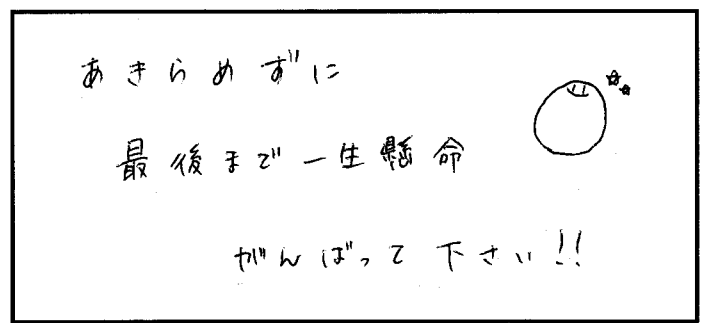 あきらめずに
最後まで一生懸命
がんばって下さい!!